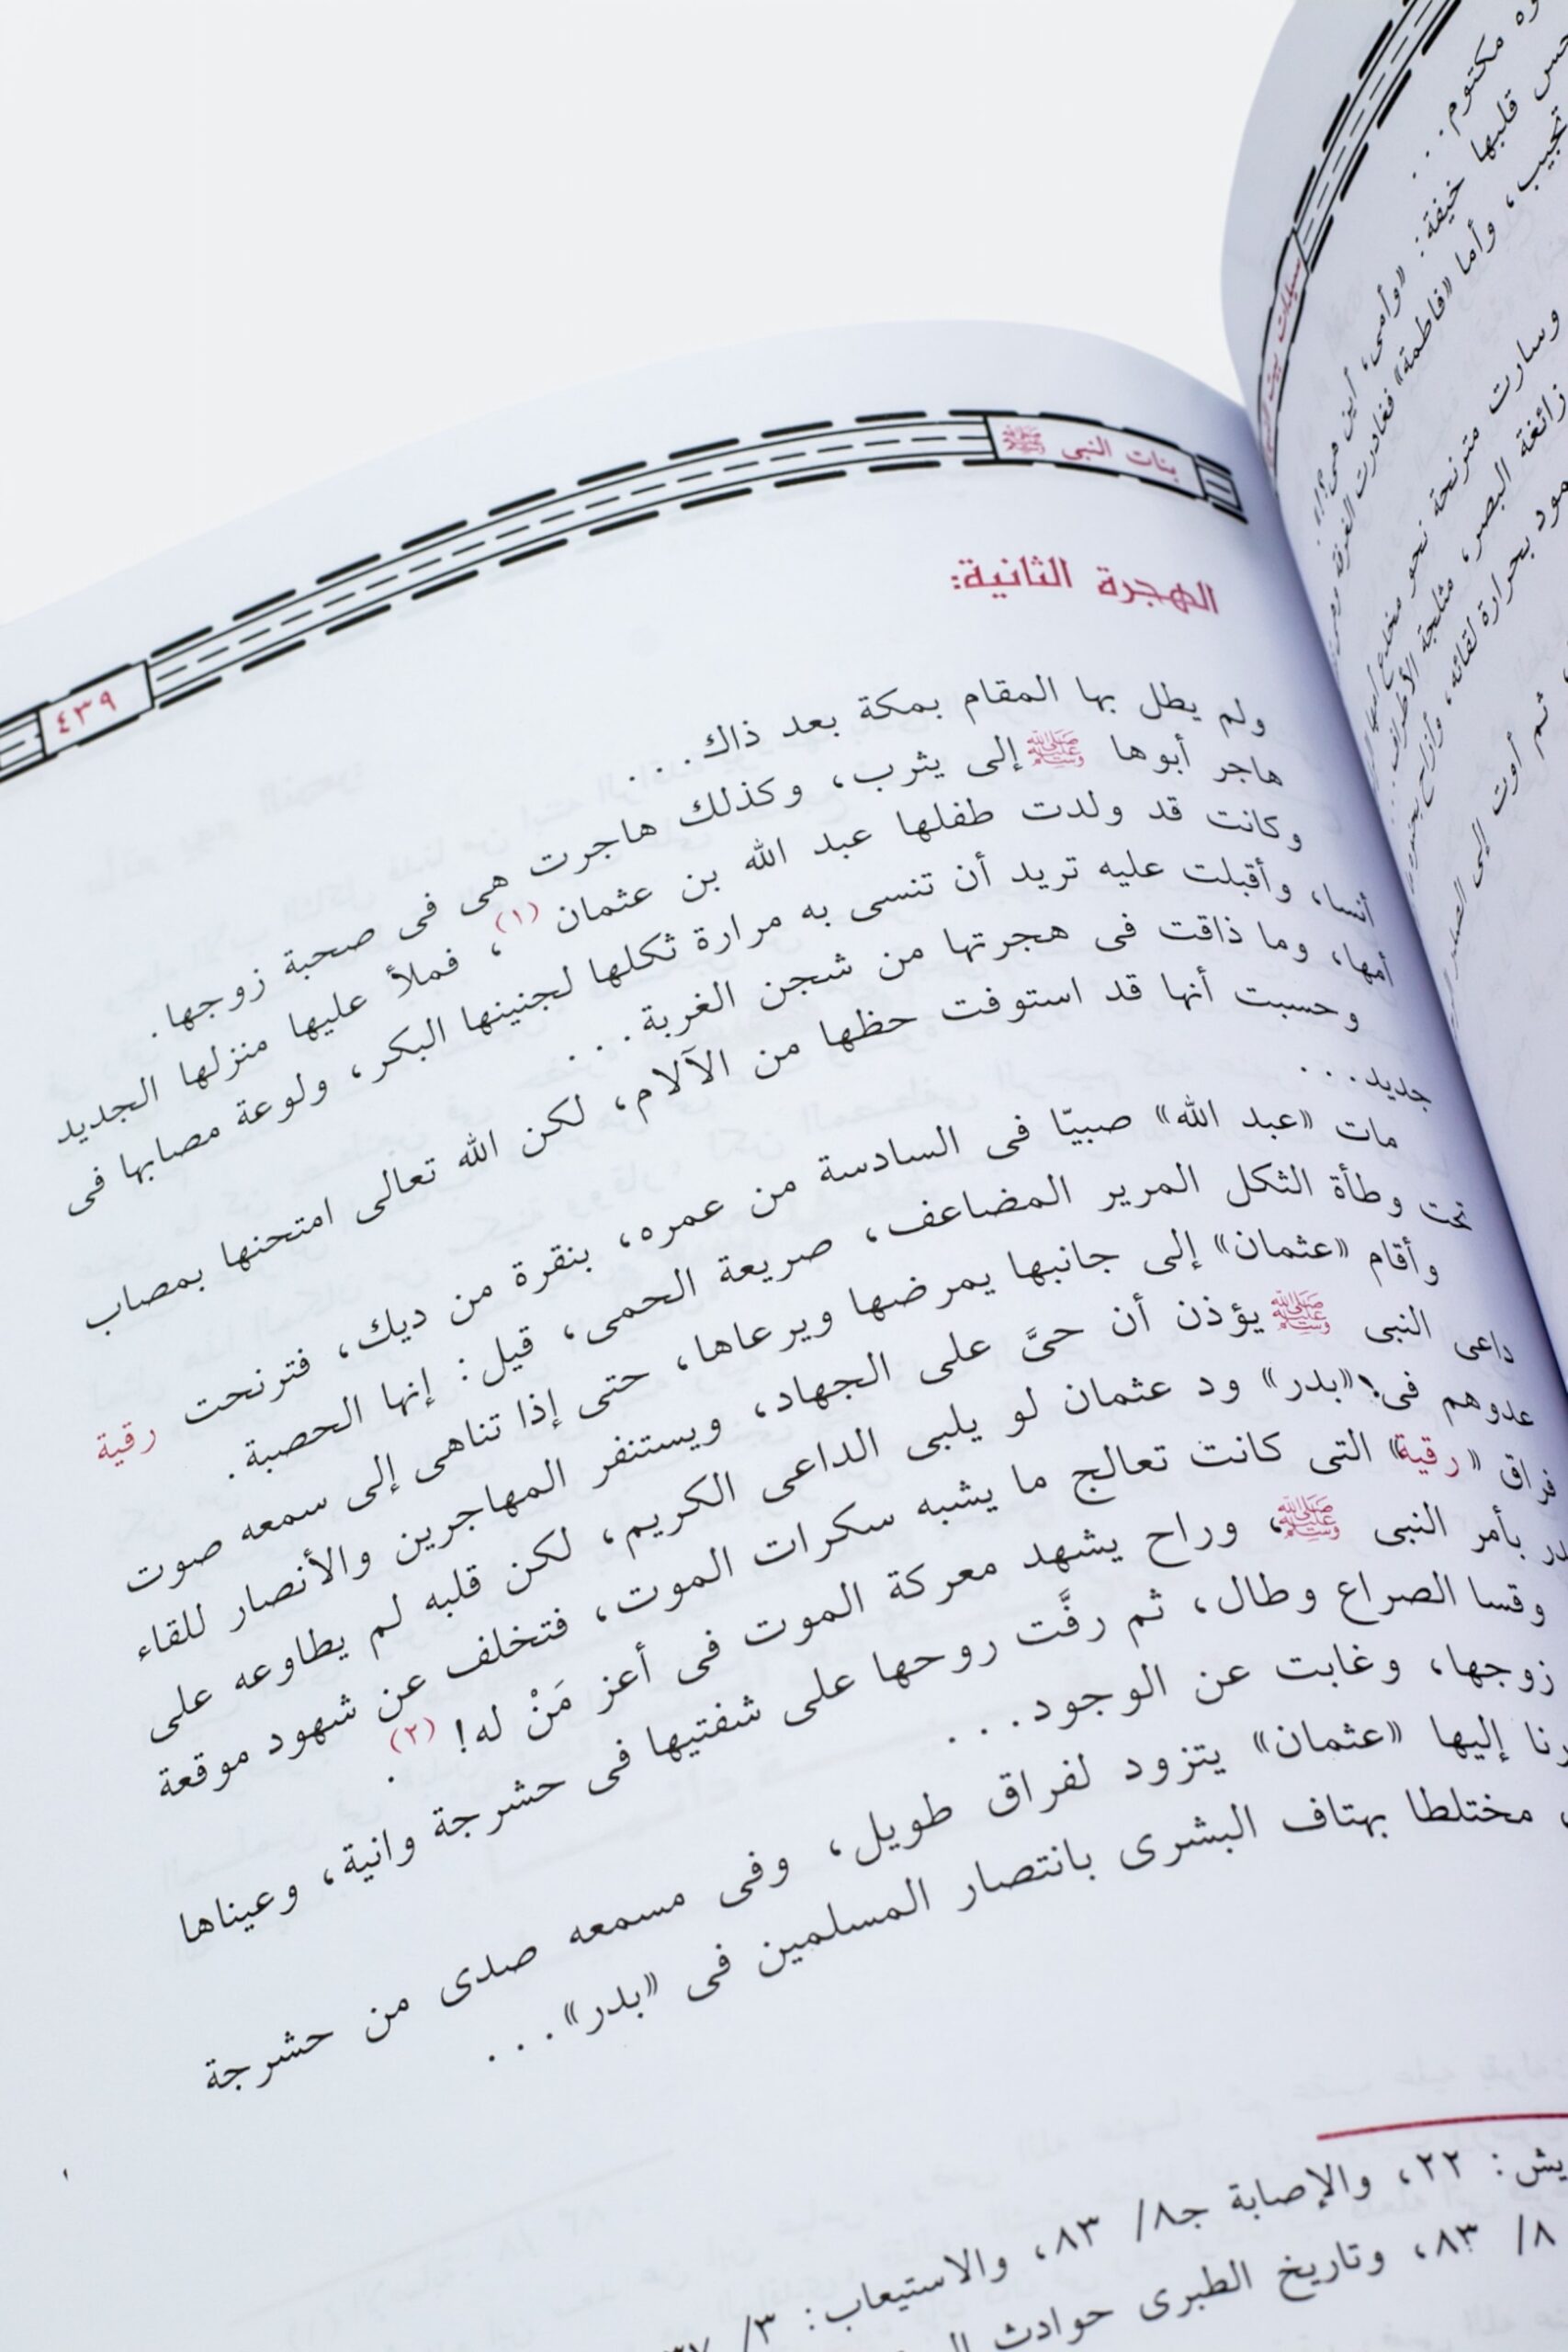 سيدات بيت النبى
مكتوم...
قلبها خيفة: «وأمى، أين هى؟!».
تجيب، وأما «فاطمة» فغادرت الغرفة
وسارت مترنحة نحو مخدع أمها
زائغة البصر، مثلجة الأطراف...
بحرارة لقائه، وأزاح
ثم أوت إلى
بنات النبى ﷺ
٤٣٩
الهجرة الثانية:
ولم يطل بها المقام بمكة بعد ذاك....
هاجر أبوها ﷺ إلى يثرب، وكذلك هاجرت هى فى صحبة زوجها.
وكانت قد ولدت طفلها عبد الله بن عثمان (١)، فملأ عليها منزلها الجديد
أنسا، وأقبلت عليه تريد أن تنسى به مرارة ثكلها لجنينها البكر، ولوعة مصابها فى
أمها، وما ذاقت فى هجرتها من شجن الغربة...
وحسبت أنها قد استوفت حظها من الآلام، لكن الله تعالى امتحنها بمصاب
جديد...
مات «عبد الله» صبيّا فى السادسة من عمره، بنقرة من ديك، فترنحت رقية
تحت وطأة الثكل المرير المضاعف، صريعة الحمى، قيل: إنها الحصبة.
وأقام «عثمان» إلى جانبها يمرضها ويرعاها، حتى إذا تناهى إلى سمعه صوت
داعى النبى ﷺ يؤذن أن حىَّ على الجهاد، ويستنفر المهاجرين والأنصار للقاء
عدوهم فى «بدر» ود عثمان لو يلبى الداعى الكريم، لكن قلبه لم يطاوعه على
فراق «رقية» التى كانت تعالج ما يشبه سكرات الموت، فتخلف عن شهود موقعة
بأمر النبى ﷺ، وراح يشهد معركة الموت فى أعز مَنْ له! (٢).
وقسا الصراع وطال، ثم رفَّت روحها على شفتيها فى حشرجة وانية، وعيناها
زوجها، وغابت عن الوجود...
رنا إليها «عثمان» يتزود لفراق طويل، وفى مسمعه صدى من حشرجة
مختلطا بهتاف البشرى بانتصار المسلمين فى «بدر»...
٢٢، والإصابة جـ٨/ ٨٣، والاستيعاب: ٣/
٨/ ٨٣، وتاريخ الطبرى حوادث